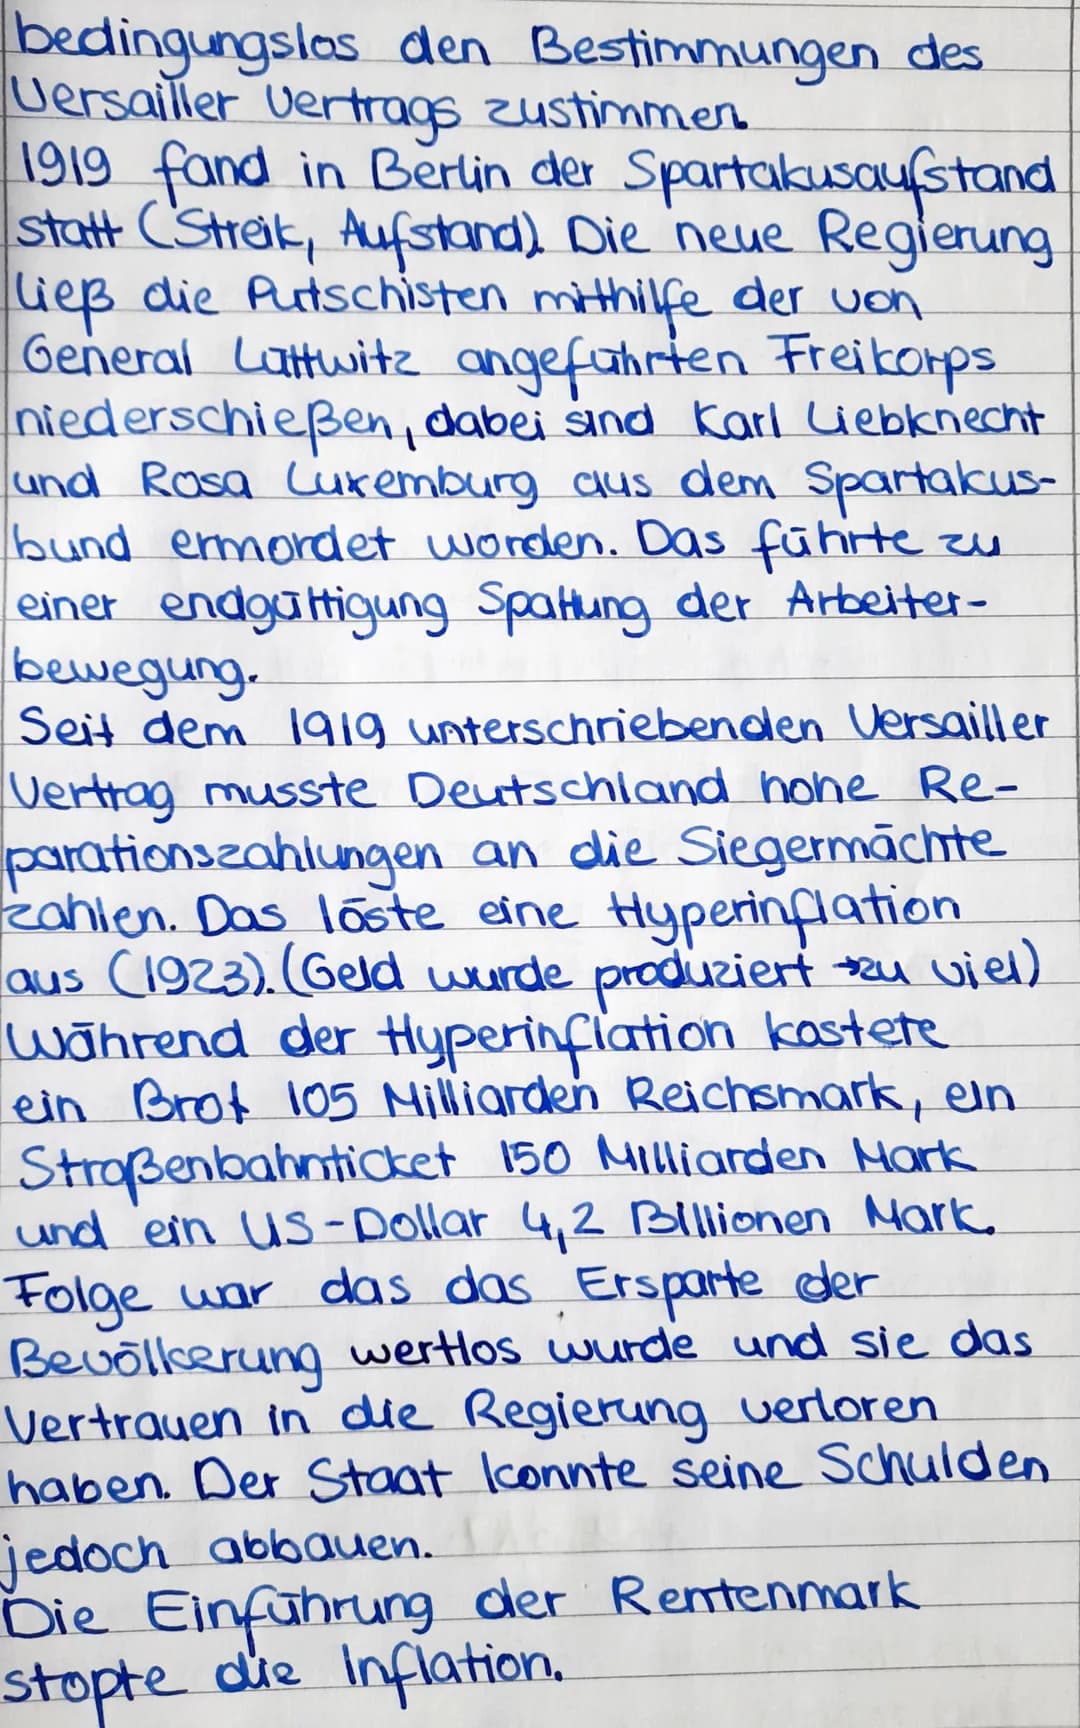 bedingungslos den Bestimmungen des
Versailler Vertrags zustimmen.
1919 fand in Berlin der Spartakusaufstand
statt (Streik, Aufstand). Die neue Regierung
ließ die Putschisten mithilfe der von
General Lüttwitz angeführten Freikorps
niederschießen, dabei sind Karl Liebknecht
und Rosa Luxemburg aus dem Spartakus-
bund ermordet worden. Das führte zu
einer endgültigung Spaltung der Arbeiter-
bewegung.
Seit dem 1919 unterschriebenden Versailler
Vertrag musste Deutschland hohe Re-
parationszahlungen an die Siegermächte
zahlen. Das löste eine Hyperinflation
aus (1923). (Geld wurde produziert → zu viel)
Während der Hyperinflation kostete
ein Brot 105 Milliarden Reichsmark, ein
Straßenbahnticket 150 Milliarden Mark
und ein US-Dollar 4,2 Billionen Mark.
Folge war das das Ersparte der
Bevölkerung wertlos wurde und sie das
Vertrauen in die Regierung verloren
haben. Der Staat konnte seine Schulden
jedoch abbauen.
Die Einführung der Rentenmark
stopte die Inflation.